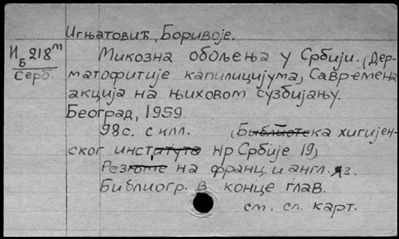 Игњатовић, Боривоје.
И
Б 218 т
Серб.
Микозна обољења у Србији. (Дер-
матофитије капилицијума, Савремена
акција на њиховом сузбијању.
Београд, 1959.
98с. с илл. (Библиотека хигијен-
ског института НР Србије 19)
Резюме на франц. и англ. яз.
Библиогр. в конце глав.
см. сл. карт.